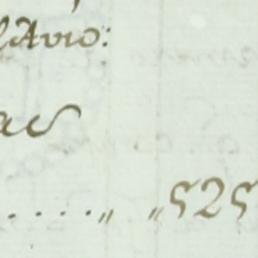 lavio:
as
....,, ,,525